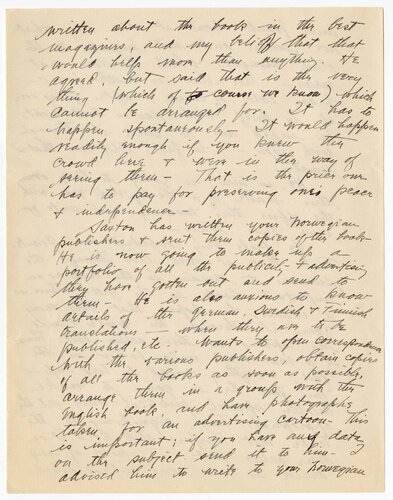 written about the book in the best
magazines, and my belief that that
would help more than anything. He
agreed, but said that is the very
thing (which of course we know) which
cannot be arranged for. It has to
happen spontaneously — It would happen
readily enough if you knew the
crowd here & were in the way of
seeing them — That is the price one
has to pay for preserving ones peace
& independence —
Saxton has written your Norwegian
publishers & sent them copies of the book —
He is now going to make up a
portfolio of all the publicity & advertising
they have gotten out and send to
them — He is also anxious to know
details of the German, Swedish & Finnish
translations — when they are to be
published, etc — Wants to open correspondence
with the various publishers, obtain copies
of all the books as soon as possible,
arrange them in a group with the
English book, and have photographs
taken for an advertising cartoon — This
is important; if you have any data
on the subject send it to him — I
advised him to write to your Norwegian